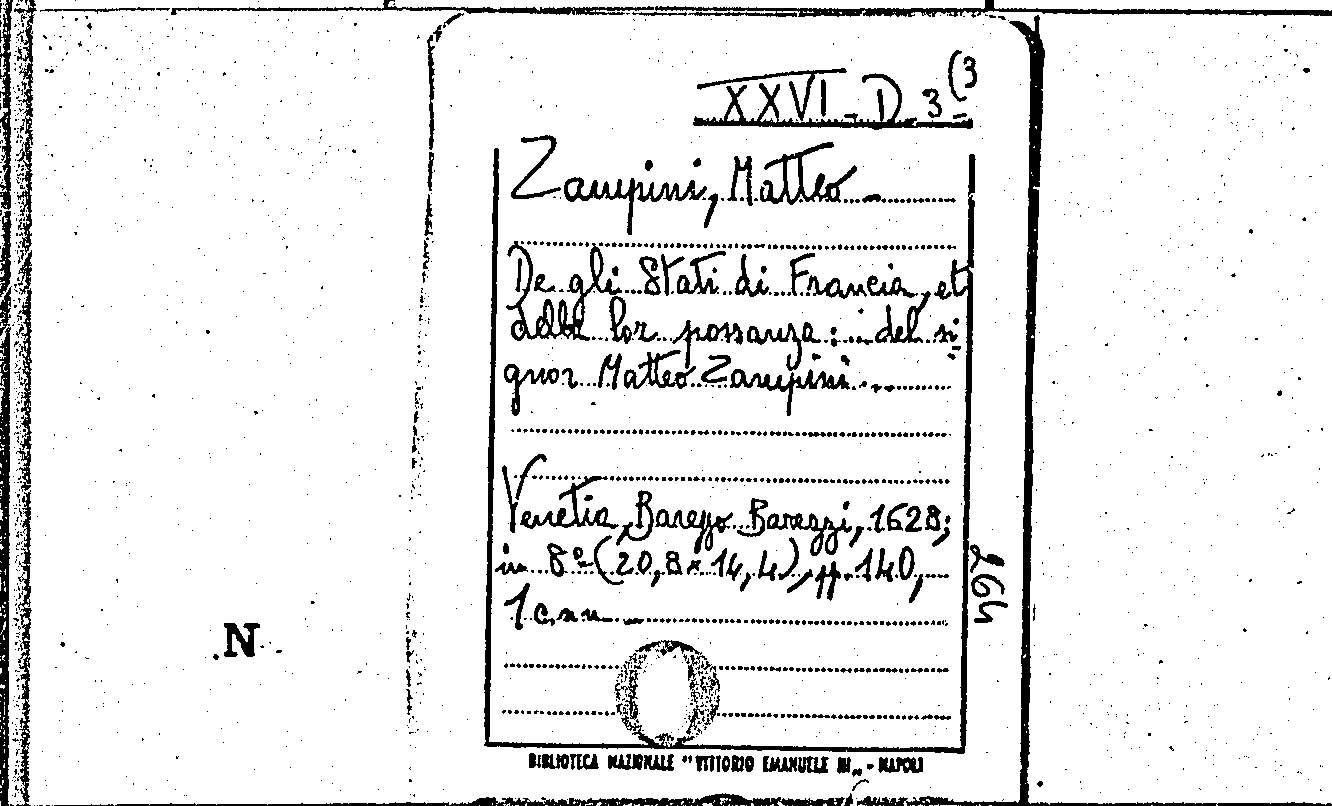 XXVI-D-3(3
Zampini, Matteo
De gli Stati di Francia, et
delle lor possanza: . del si-
gnor Matteo Zampini...
Venetia, Barezzo Barezzi, 1628;
in 8º (20,8 x 14,4), pp. 140,
1 c.nn.
264
N
BIBLIOTECA NAZIONALE "VITTORIO EMANUELE III" - NAPOLI